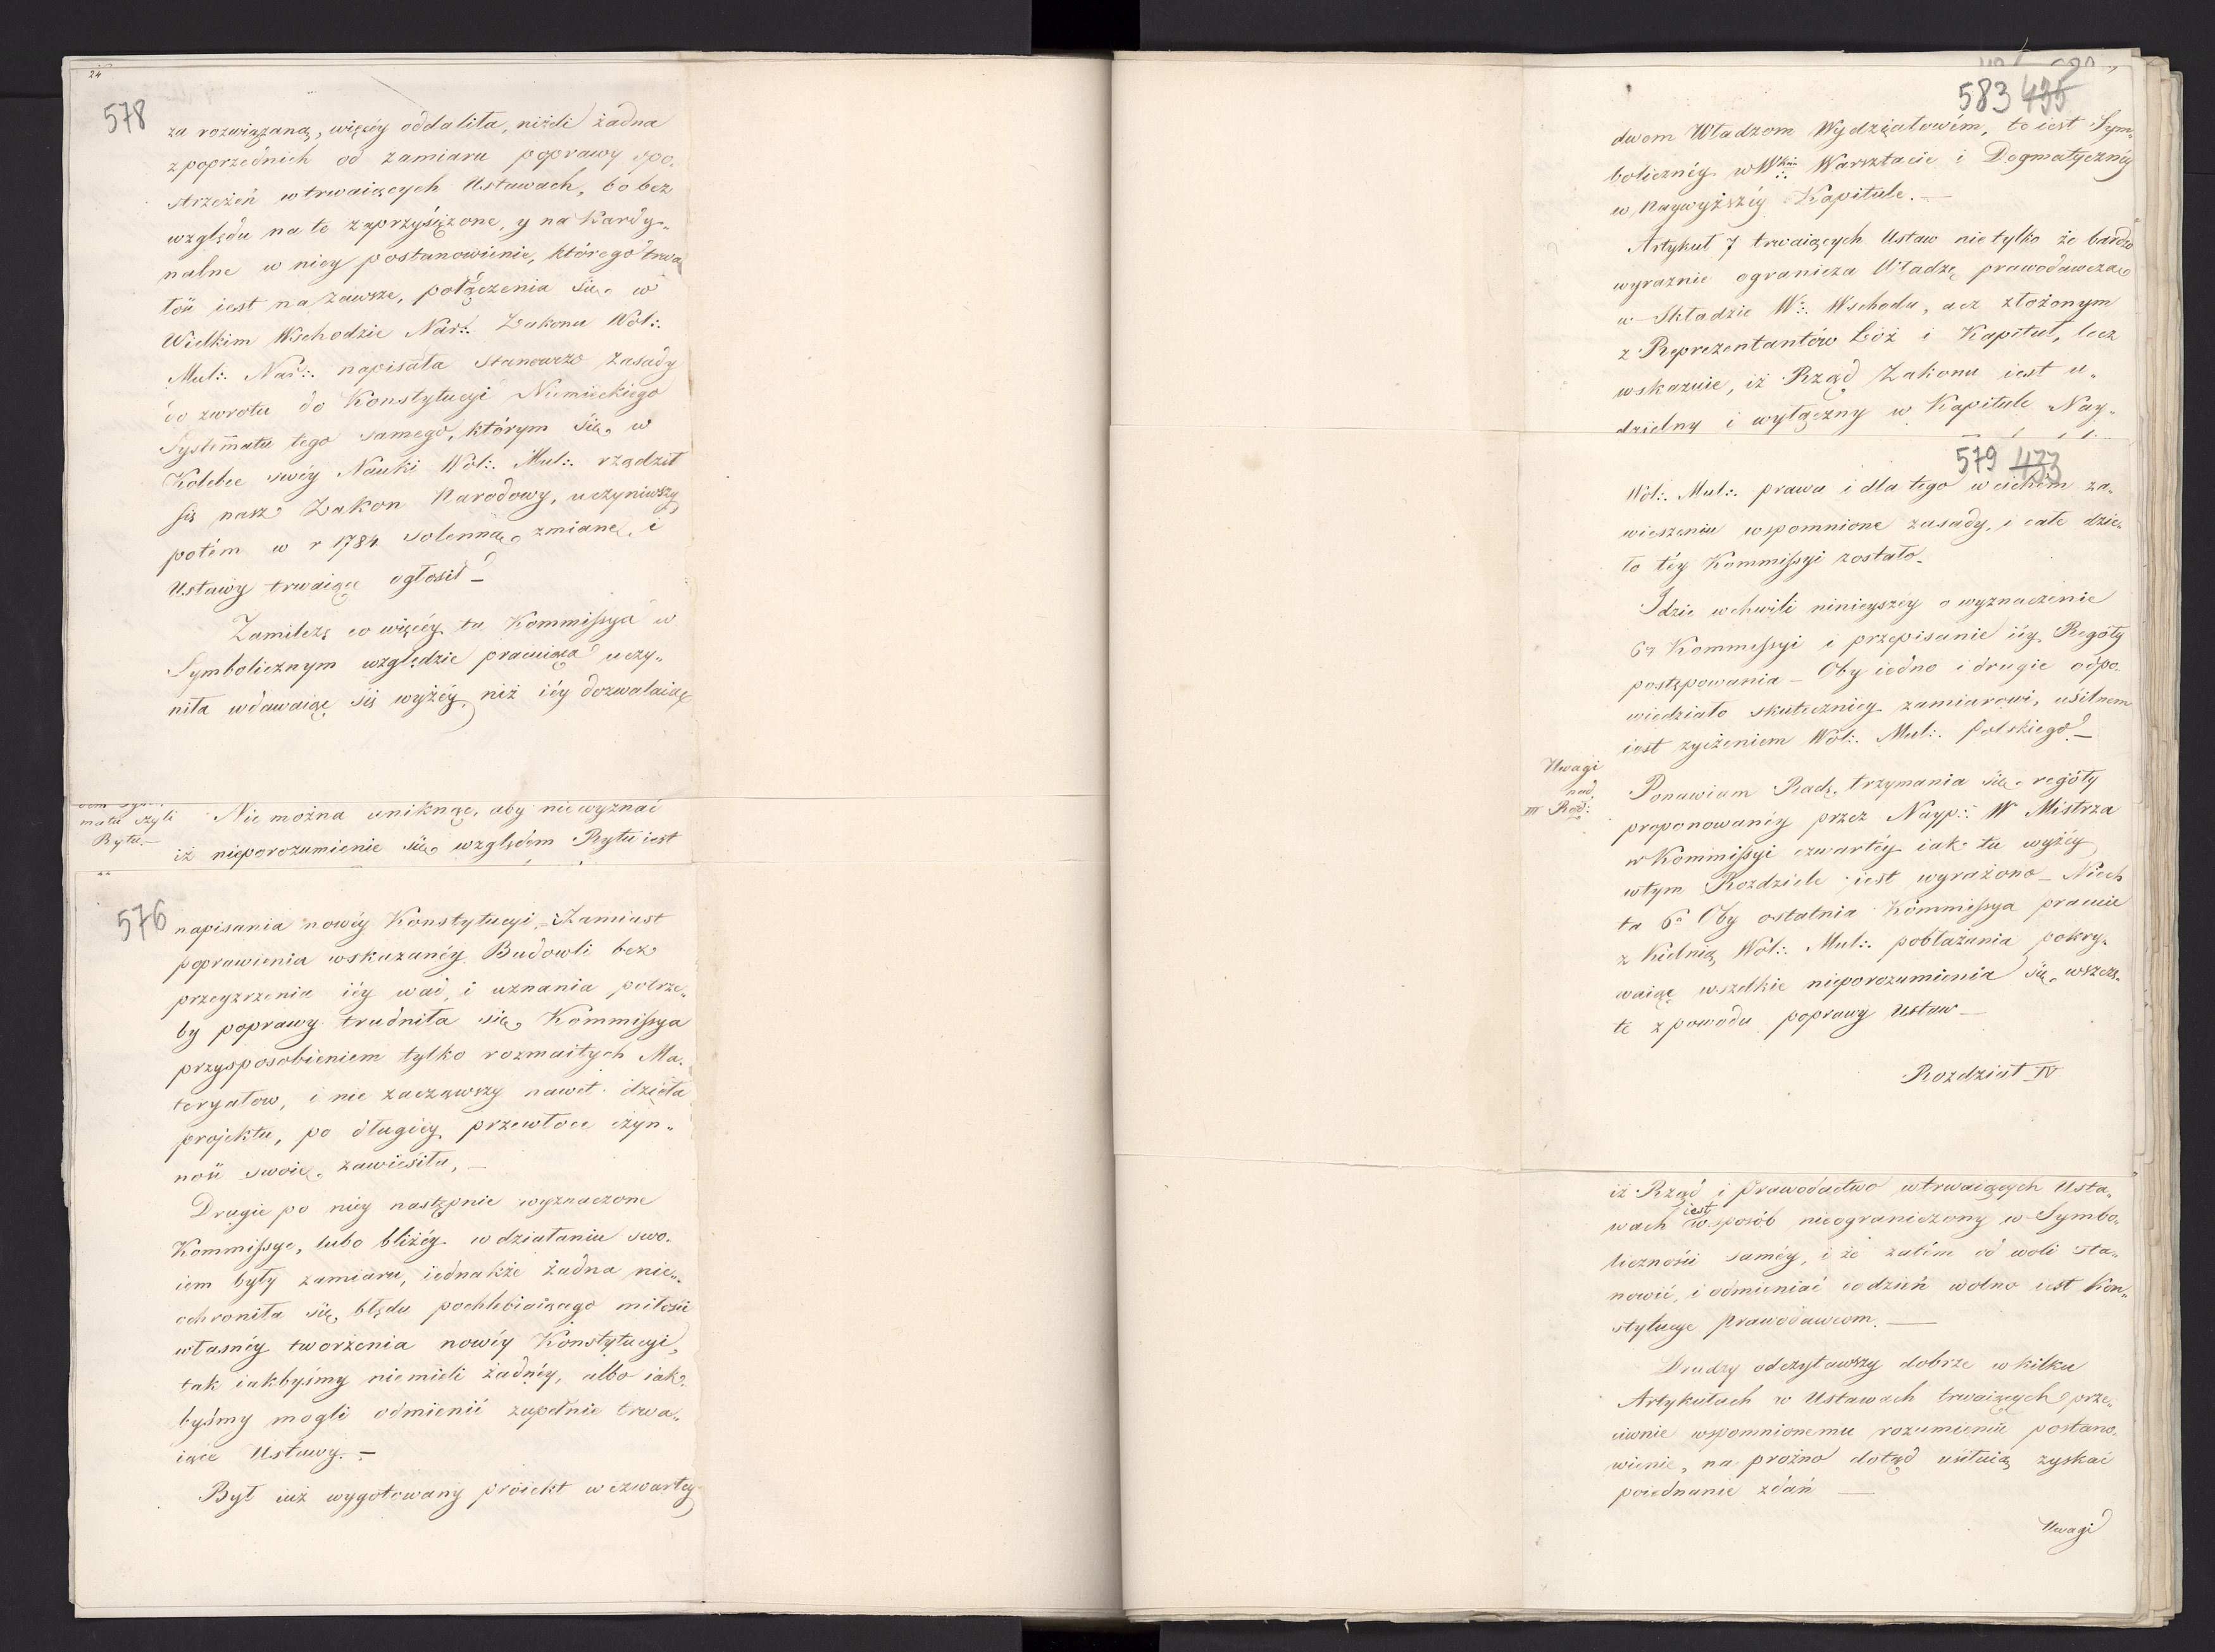 24
578
za rozwiązaną, więcéy oddaliła, niżeli żadna
z poprzednich od zamiaru poprawy spo„
strzeżeń w trwaiących Ustawach, bo bez
względu na to zaprzysiężone, y na Kardy„
nalne w niey postanowienie, którego trwa
łoú iest na zawsze, połączenia się w
Wielkim Wschodzie Nar:. Zakonu Wol:.
Mul:. Nar:. napisała stanowczo zasady
do zwrotu do Konstytucyi Niemieckiego
Systematu tego samego, którym się w
Kolebce swéy Nauki Wol:. Mul:. rządził
się nasz Zakon Narodowy, uczyniwszy
potém w r 1784 solenną zmianę, i
Ustawy trwaiące ogłosił —
Zamilczę co więcéy ta Kommissya w
Symbolicznym względzie pracuiąca uczy„
niła wdawaiąc się wyżéy, niż iéy dozwalaią
matu czyli
Rytu.—
Nie można uniknąć, aby nie wyznać
iż nieporozumienie się względem Rytu iest
576
napisania nowéy Konstytucyi, Zamiast
poprawienia wskazanéy Budowli bez
przeyzrzenia iéy wad, i uznania potrze„
by poprawy trudniła się Kommissya
przysposobieniem tylko rozmaitych Ma„
teryałow, i nie zacząwszy nawet dzieła
projektu, po długiéy przewłoce czyn„
noú swoię zawiesiła, —
Drugie po niey następnie wyznaczone
Kommissye, lubo bliżéy w działaniu swo„
iem były zamiaru, iednakże żadna nie„
ochroniła się błędu pochlebiaiącego miłości
własnéy tworzenia nowéy Konstytucyi,
tak iakbyśmy niemieli żadnéy, albo iak„
byśmy mogli odmienić zupełnie trwa„
iące Ustawy. —
Był iuż wygotowany proiekt w czwartey
583 435
dwom Władzom Wydziałowém, to iest Sym„
bolicznéy w Wkim:. Warsztacie i Dogmatycznéy
w Naywyższéy Kapitule. —
Artykuł 7 trwaiących Ustaw nie tylko że bardzo
wyraźnie ogranicza Władzę prawodawczą
w Składzie W:. Wschodu, acz złożonym
z Reprezentantów Lóż i Kapituł, lecz
wskazuie, iż Rząd Zakonu iest u„
dzielny i wyłączny w Kapitule Nay„
579 433
Wol:. Mul:. prawa i dla tego w cichem za„
wieszeniu wspomnione zasady, i całe dzie„
ło téy Kommissyi zostało.
Idzie w chwili ninieyszéy o wyznaczenie
6éy Kommissyi i przepisanie iéy Reguły
postępowania — Oby iedno i drugie odpo„
wiedziało skuteczniéy zamiarowi, usilnem
iest życzeniem Wol:. Mul:. Polskiego —
Uwagi
nad
III Roz:
Ponawiam Radę trzymania się reguły
proponowanéy przez Nayp:. W Mistrza
w Kommissyi czwartéy iak tu wyżéy
w tym Rozdziele iest wyrażono — Niech
ta 6a Oby ostatnia Kommissya pracuie
z Kielnią Wol:. Mul:. pobłażania pokry„
waiąc wszelkie nieporozumienia się wszczę„
te z powodu poprawy Ustaw —
Rozdział IV
iż Rząd i Prawodactwo w trwaiących Usta„
iest
wach w sposób nieograniczony w Symbo„
liczności saméy, i że zatém od woli sta„
nowić, i odmieniać co dzień wolno iest Kon„
stytucye Prawodawcom. —
Drudzy odczytawszy dobrze w kilku
Artykułach w Ustawach trwaiących prze„
ciwnie wspomnionemu rozumieniu postano„
wienie, na próżno dotąd usiłuią zyskać
poiednanie zdań —
Uwagi